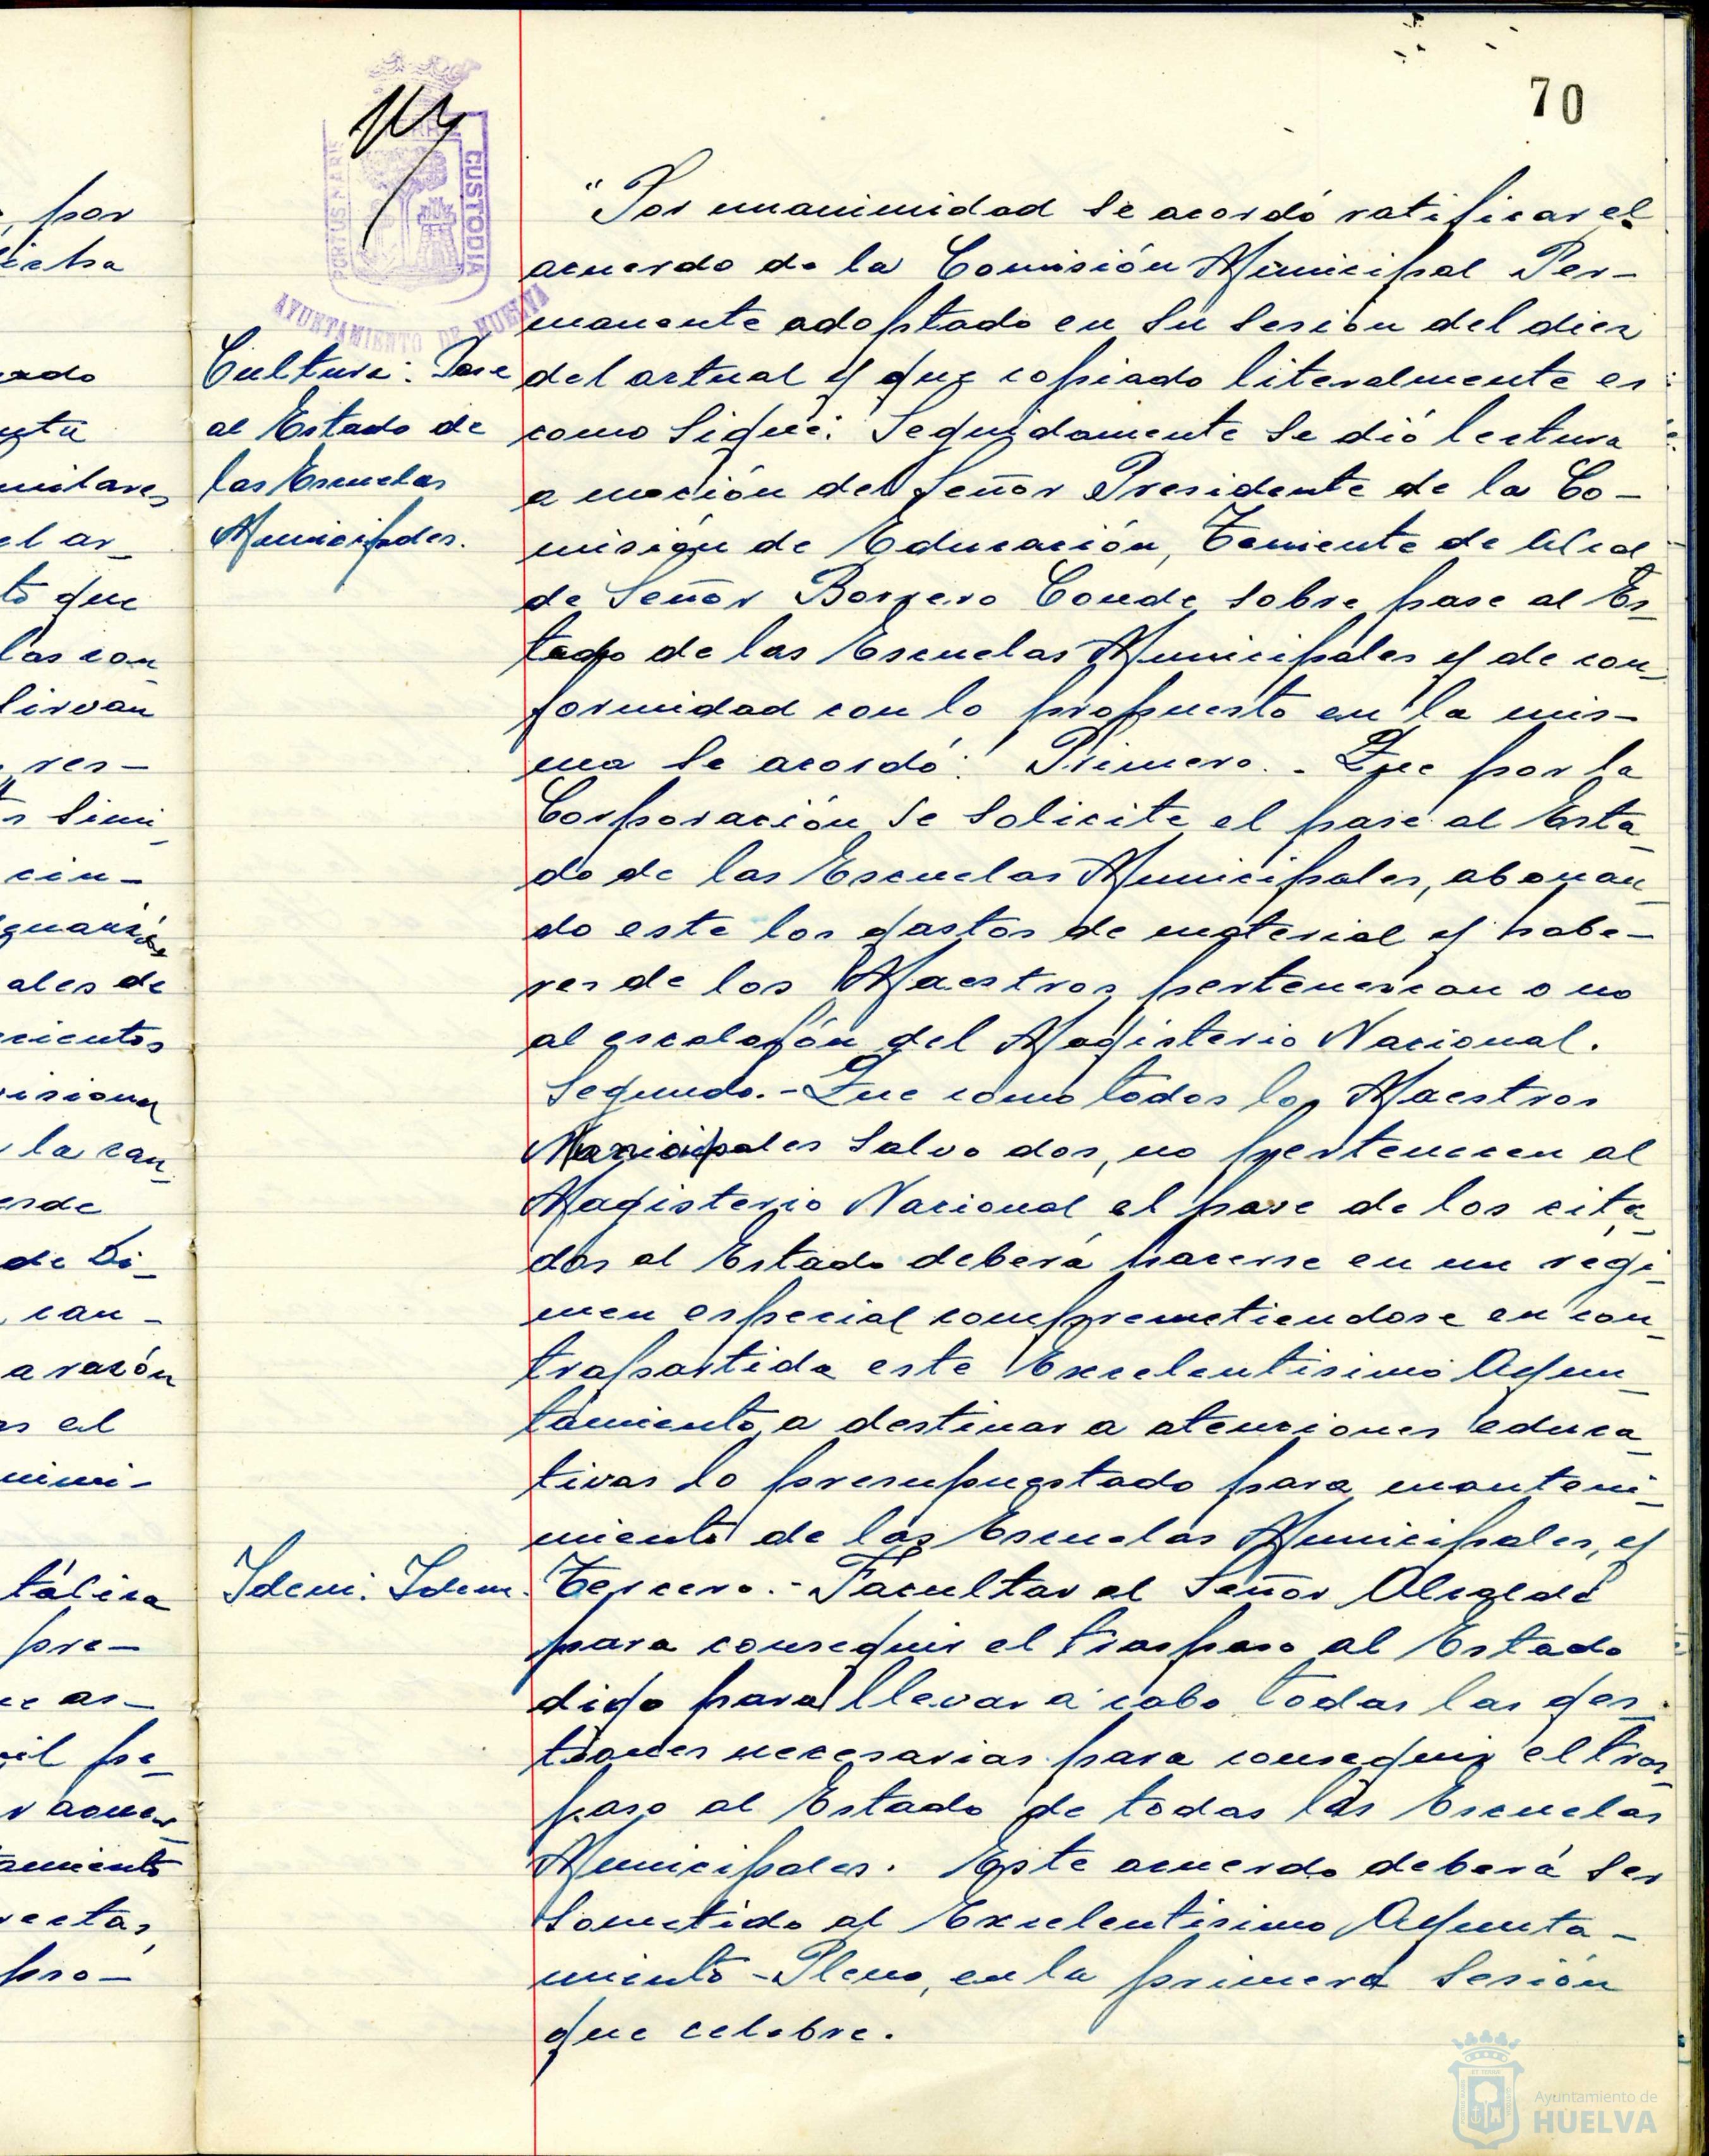 70
PORTUS MARIS
CUSTODIA
AYUNTAMIENTO DE HUELVA
Cultura: Pase
al Estado de
las Escuelas
Municipales.
Idem. Idem.
"Por unanimidad se acordó ratificar el
acuerdo de la Comisión Municipal Per-
manente adoptado en su sesión del diez
del actual y que copiado literalmente es
como sigue: Seguidamente se dió lectura
a moción del Señor Presidente de la Co-
misión de Educación, Teniente de Alcal
de Señor Borrero Conde, sobre pase al Es-
tado de las Escuelas Municipales y de con-
formidad con lo propuesto en la mis-
ma se acordó: Primero.- Que por la
Corporación se solicite el pase al Esta-
do de las Escuelas Municipales, abonan-
do este los gastos de material y habe-
res de los Maestros pertenezcan o no
al escalafón del Magisterio Nacional.
Segundo.- Que como todos los Maestros
Municipales salvo dos, no pertenecen al
Magisterio Nacional el pase de los cita-
dos al Estado deberá hacerse en un regi-
men especial comprometiendose en con-
trapartida este Excelentisimo Ayun-
tamiento a destinar a atenciones educa-
tivas lo presupuestado para manteni-
miento de las Escuelas Municipales, y
Tercero.- Facultar al Señor Alcalde
para conseguir el traspaso al Estado
digo para llevar a cabo todas las ges-
tiones necesarias para conseguir el tras-
paso al Estado de todas las Escuelas
Municipales. Este acuerdo deberá ser
sometido al Excelentisimo Ayunta-
miento-Pleno, en la primera sesión
que celebre.
por
ta que
las con
sirvan
res-
simi-
cin-
ales de
la can-
de Di-
can-
a razón
as el
pre-
pro-
Ayuntamiento de
HUELVA